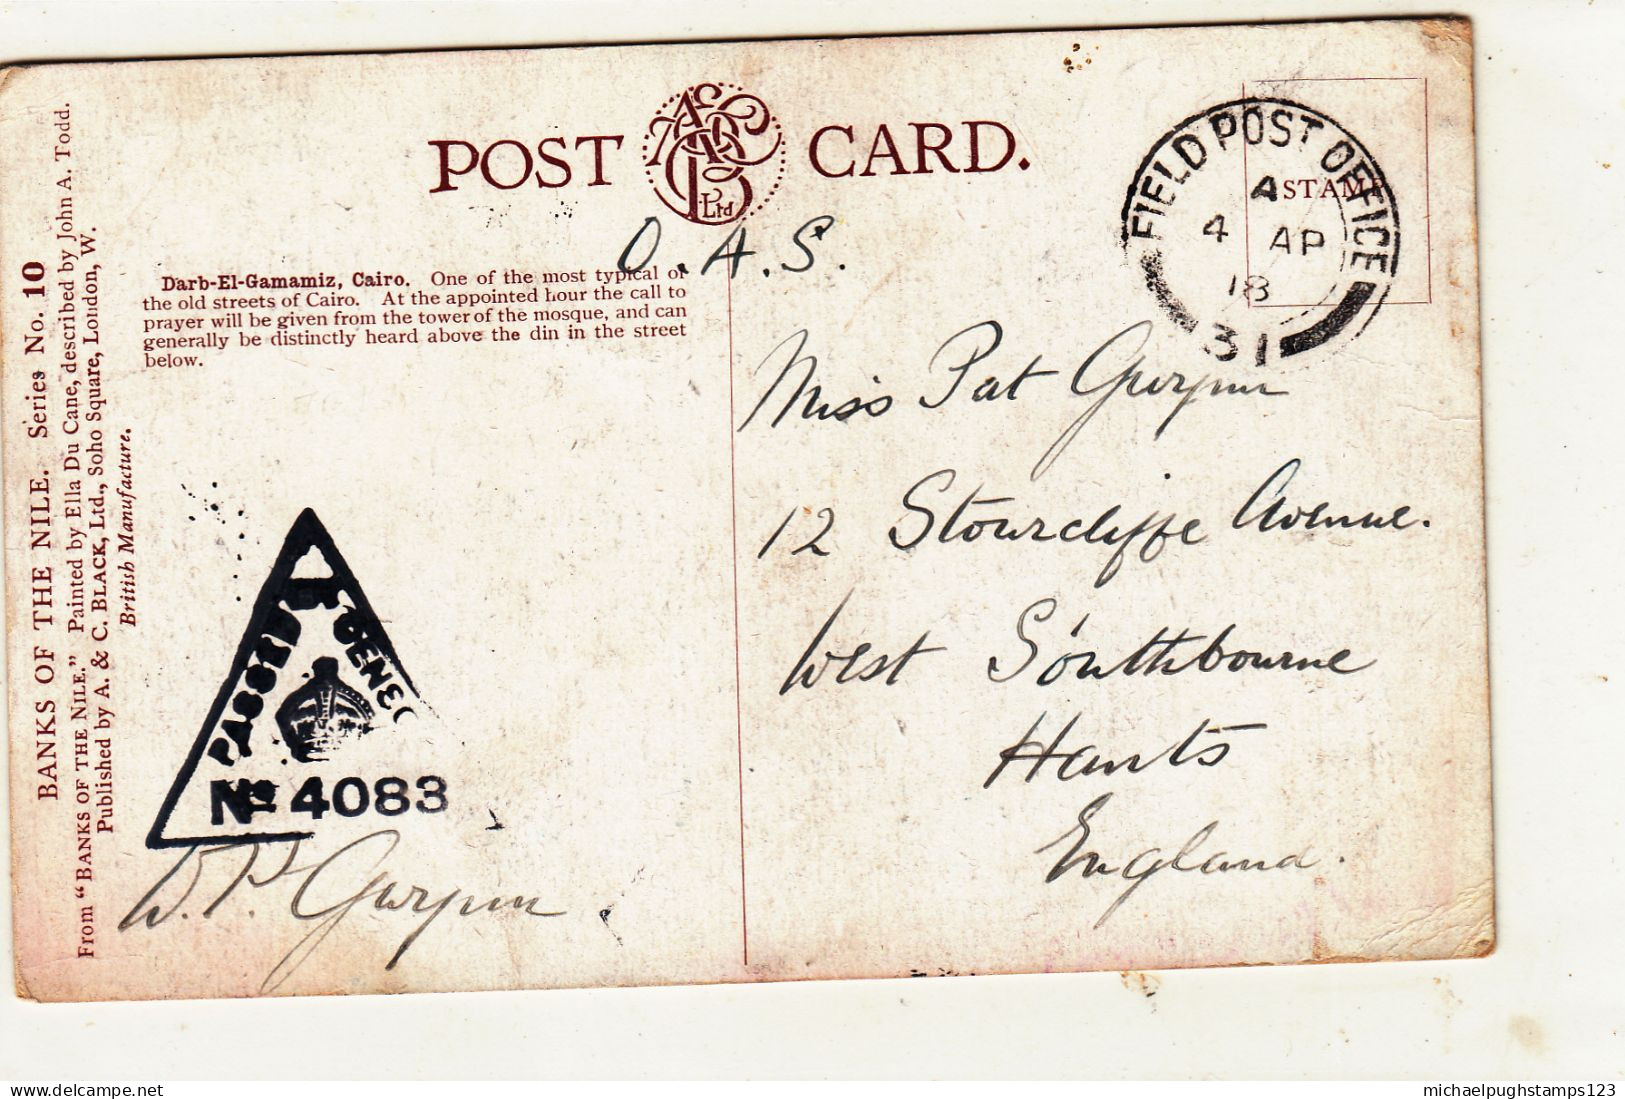 BANKS OF THE NILE. Series No. 10
From "BANKS OF THE NILE." Painted by Ella Du Cane, described by John A. Todd.
Published by A. & C. BLACK, Ltd., Soho Square, London, W.
British Manufacture.
POST CARD.
Ltd
Darb-El-Gamamiz, Cairo. One of the most typical of
the old streets of Cairo. At the appointed hour the call to
prayer will be given from the tower of the mosque, and can
generally be distinctly heard above the din in the street
below.
O.A.S.
STAMP
FIELD POST OFFICE
A
4 AP
18
31
Miss Pat
12 Stourcliffe Avenue.
West Southbourne
Hants
England.
PASSED
No 4083